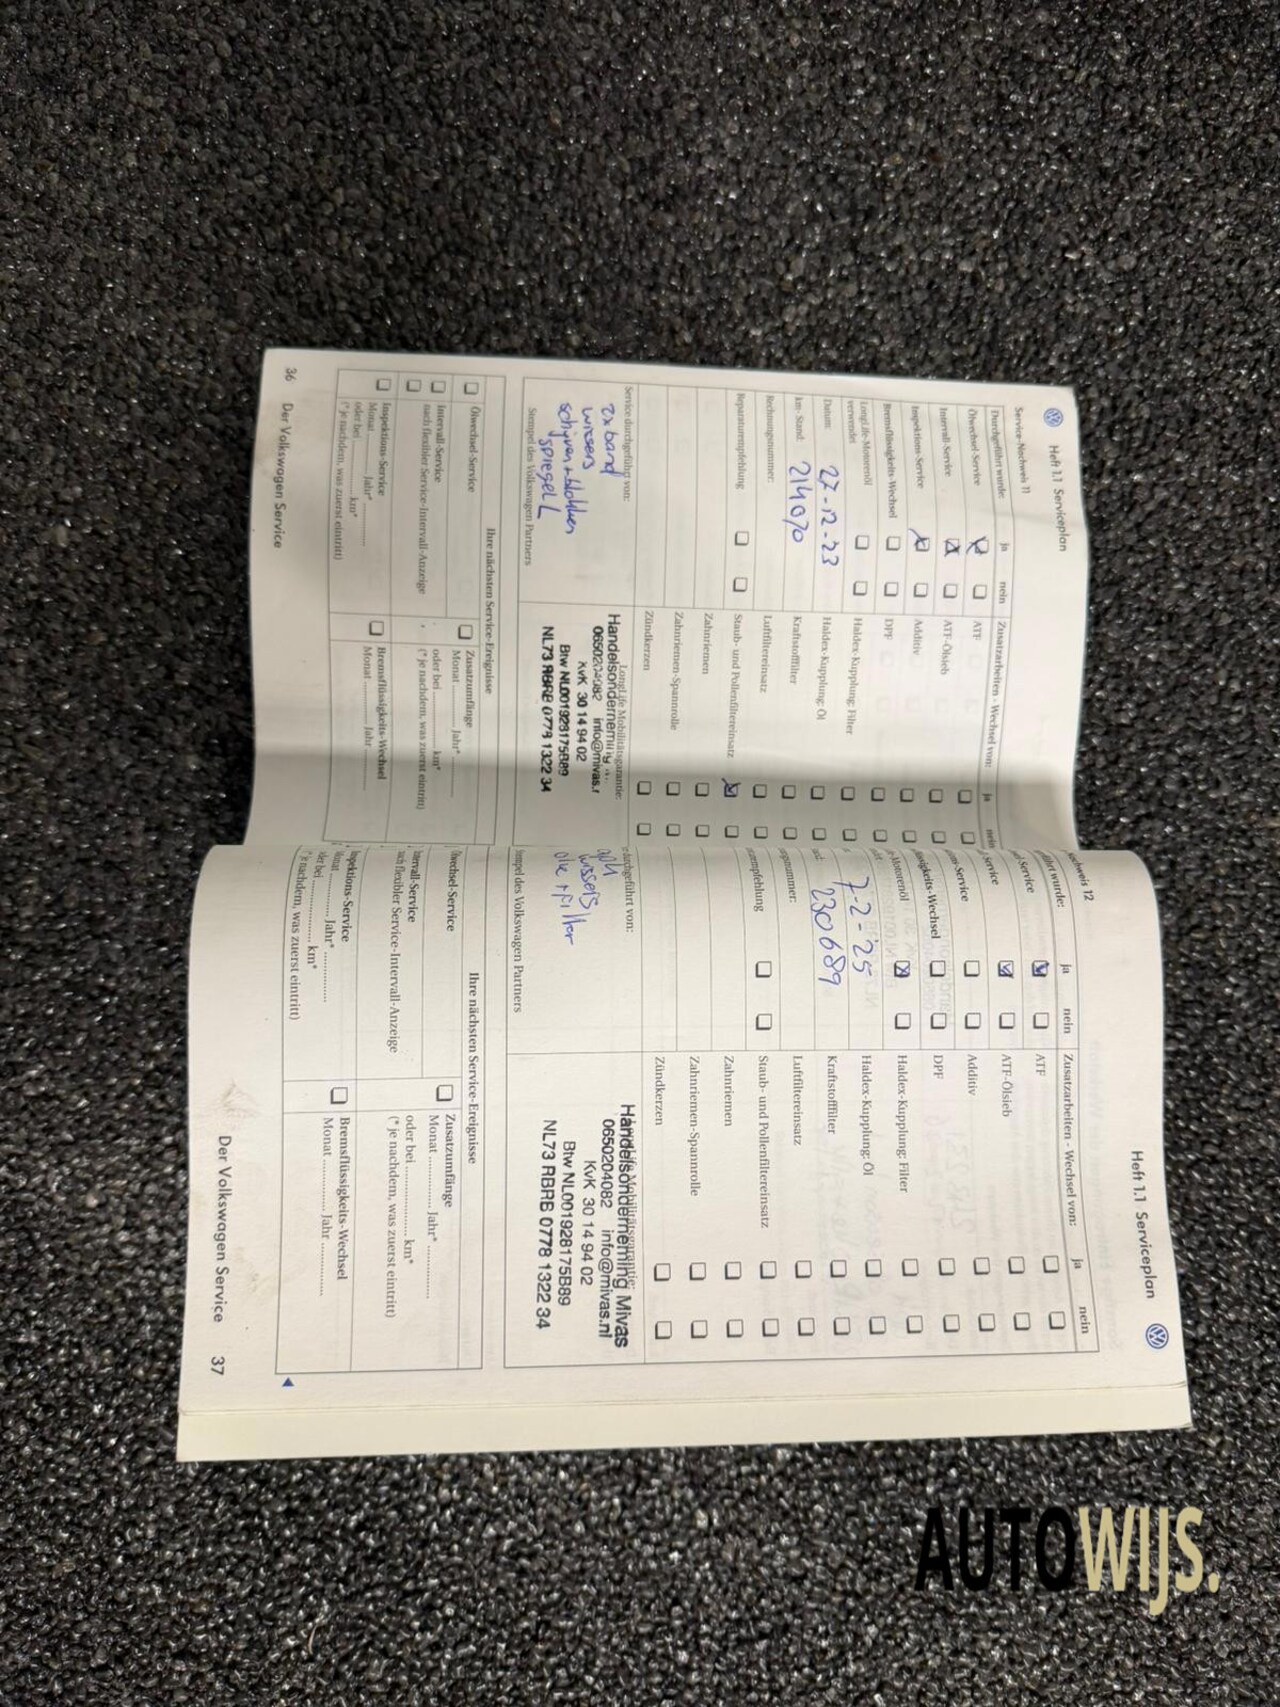 Heft 1.1 Serviceplan
Service-Nachweis 11
Durchgeführt wurde: ja nein
Ölwechsel-Service
Intervall-Service
Inspektions-Service
Bremsflüssigkeits-Wechsel
LongLife-Motorenöl
verwendet
Datum: 27-12-23
km-Stand: 214070
Rechnungsnummer:
Reparaturempfehlung
Service durchgeführt von:
2x band
wissers
schijven + blokken
spiegel L
Stempel des Volkswagen Partners
Zusatzarbeiten - Wechsel von: ja nein
ATF
ATF-Ölsieb
Additiv
DPF
Haldex-Kupplung: Filter
Haldex-Kupplung: Öl
Kraftstofffilter
Luftfiltereinsatz
Staub- und Pollenfiltereinsatz
Zahnriemen
Zahnriemen-Spannrolle
Zündkerzen
LongLife Mobilitätsgarantie:
Handelsonderneming
0650204082 info@mivas.
KvK 30 14 94 02
Btw NL001928175B89
NL73 RBRB 0778 1322 34
Ihre nächsten Service-Ereignisse
Ölwechsel-Service
Intervall-Service
nach flexibler Service-Intervall-Anzeige
Inspektions-Service
Monat ......... Jahr* .........
oder bei ......... km*
(* je nachdem, was zuerst eintritt)
Zusatzumfänge
Monat ......... Jahr* .........
oder bei ......... km*
(* je nachdem, was zuerst eintritt)
Bremsflüssigkeits-Wechsel
Monat ......... Jahr .........
36 Der Volkswagen Service
Heft 1.1 Serviceplan
nachweis 12
führt wurde: ja nein
-Service
-Service
-Service
sigkeits-Wechsel
-Motorenöl
7-2-'25
230689
gsnummer:
rempfehlung
durchgeführt von:
wissers
olie + filter
tempel des Volkswagen Partners
Zusatzarbeiten - Wechsel von: ja nein
ATF
ATF-Ölsieb
Additiv
DPF
Haldex-Kupplung: Filter
Haldex-Kupplung: Öl
Kraftstofffilter
Luftfiltereinsatz
Staub- und Pollenfiltereinsatz
Zahnriemen
Zahnriemen-Spannrolle
Zündkerzen
Mobilitätsgarantie:
Handelsonderneming Mivas
0650204082 info@mivas.nl
KvK 30 14 94 02
Btw NL001928175B89
NL73 RBRB 0778 1322 34
Ihre nächsten Service-Ereignisse
lwechsel-Service
tervall-Service
ach flexibler Service-Intervall-Anzeige
spektions-Service
onat ......... Jahr* .........
der bei ......... km*
je nachdem, was zuerst eintritt)
Zusatzumfänge
Monat ......... Jahr* .........
oder bei ......... km*
(* je nachdem, was zuerst eintritt)
Bremsflüssigkeits-Wechsel
Monat ......... Jahr .........
Der Volkswagen Service 37
AUTOWIJS.